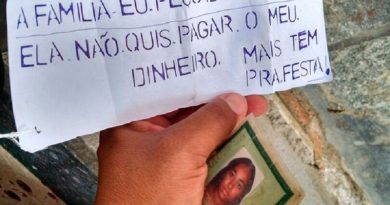 A FAMILIA.EU.
ELA.NÃO.QUIS.PAGAR.O MEU.
DINHEIRO. MAIS TEM
PRA.FESTA!